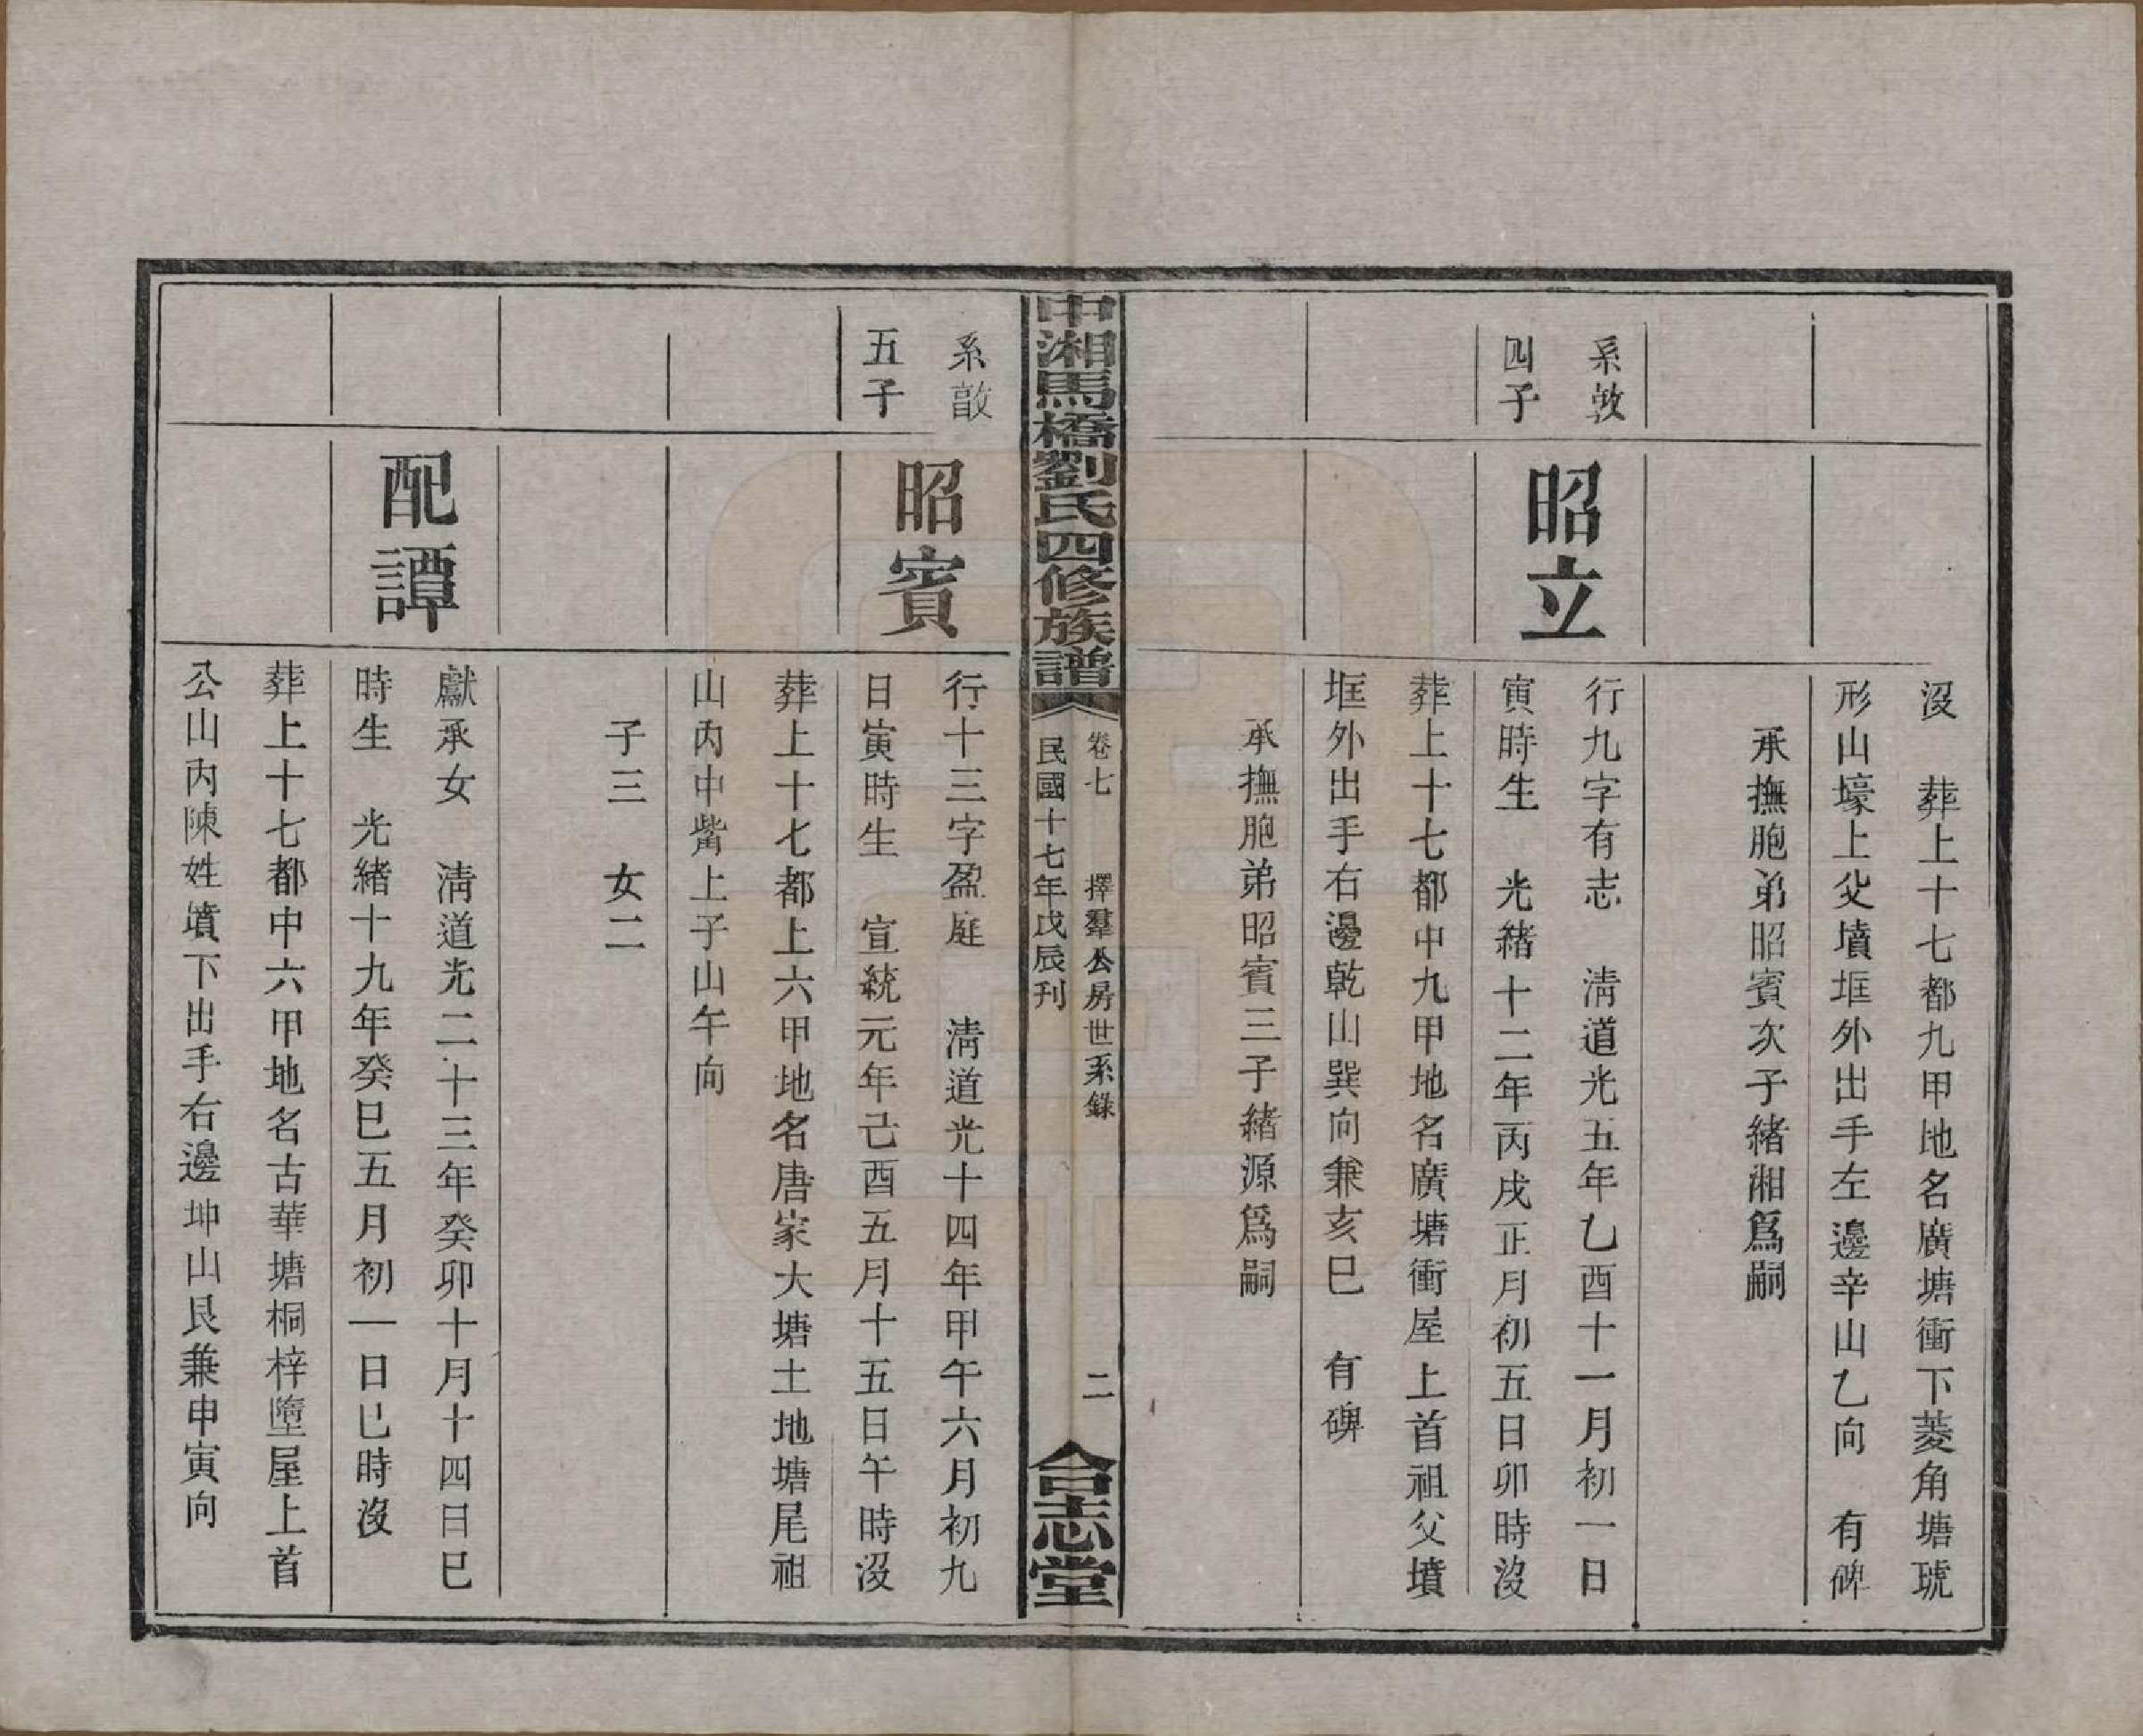 沒　葬上十七都九甲地名廣塘衝下菱角塘琥
形山壕上父墳框外出手左邊辛山乙向　有碑
承撫胞弟昭賓次子緒湘爲嗣
系敦
四子
昭立
行九字有志　淸道光五年乙酉十一月初一日
寅時生　光緒十二年丙戌正月初五日卯時沒
葬上十七都中九甲地名廣塘衝屋上首祖父墳
框外出手右邊乾山巽向兼亥巳　有碑
承撫胞弟昭賓三子緒源爲嗣
中湘馬橋劉氏四修族譜
卷七　擇羣公房世系錄　二
民國十七年戊辰刊
合志堂
系敦
五子
昭賓
行十三字盈庭　淸道光十四年甲午六月初九
日寅時生　宣統元年己酉五月十五日午時沒
葬上十七都上六甲地名唐家大塘土地塘尾祖
山內中觜上子山午向
子三　女二
配譚
獻承女　淸道光二十三年癸卯十月十四日巳
時生　光緒十九年癸巳五月初一日巳時沒
葬上十七都中六甲地名古華塘桐梓墮屋上首
公山內陳姓墳下出手右邊坤山艮兼申寅向